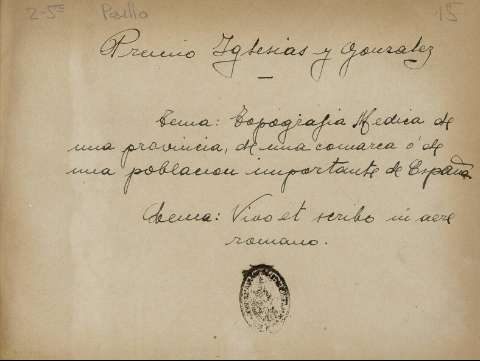 2-5ª Pasillo 15
Premio Iglesias y Gonzalez
Tema: Topografia Medica de
una provincia, de una comarca ó de
una poblacion importante de España
Lema: Vivo et scribo in aere
romano.